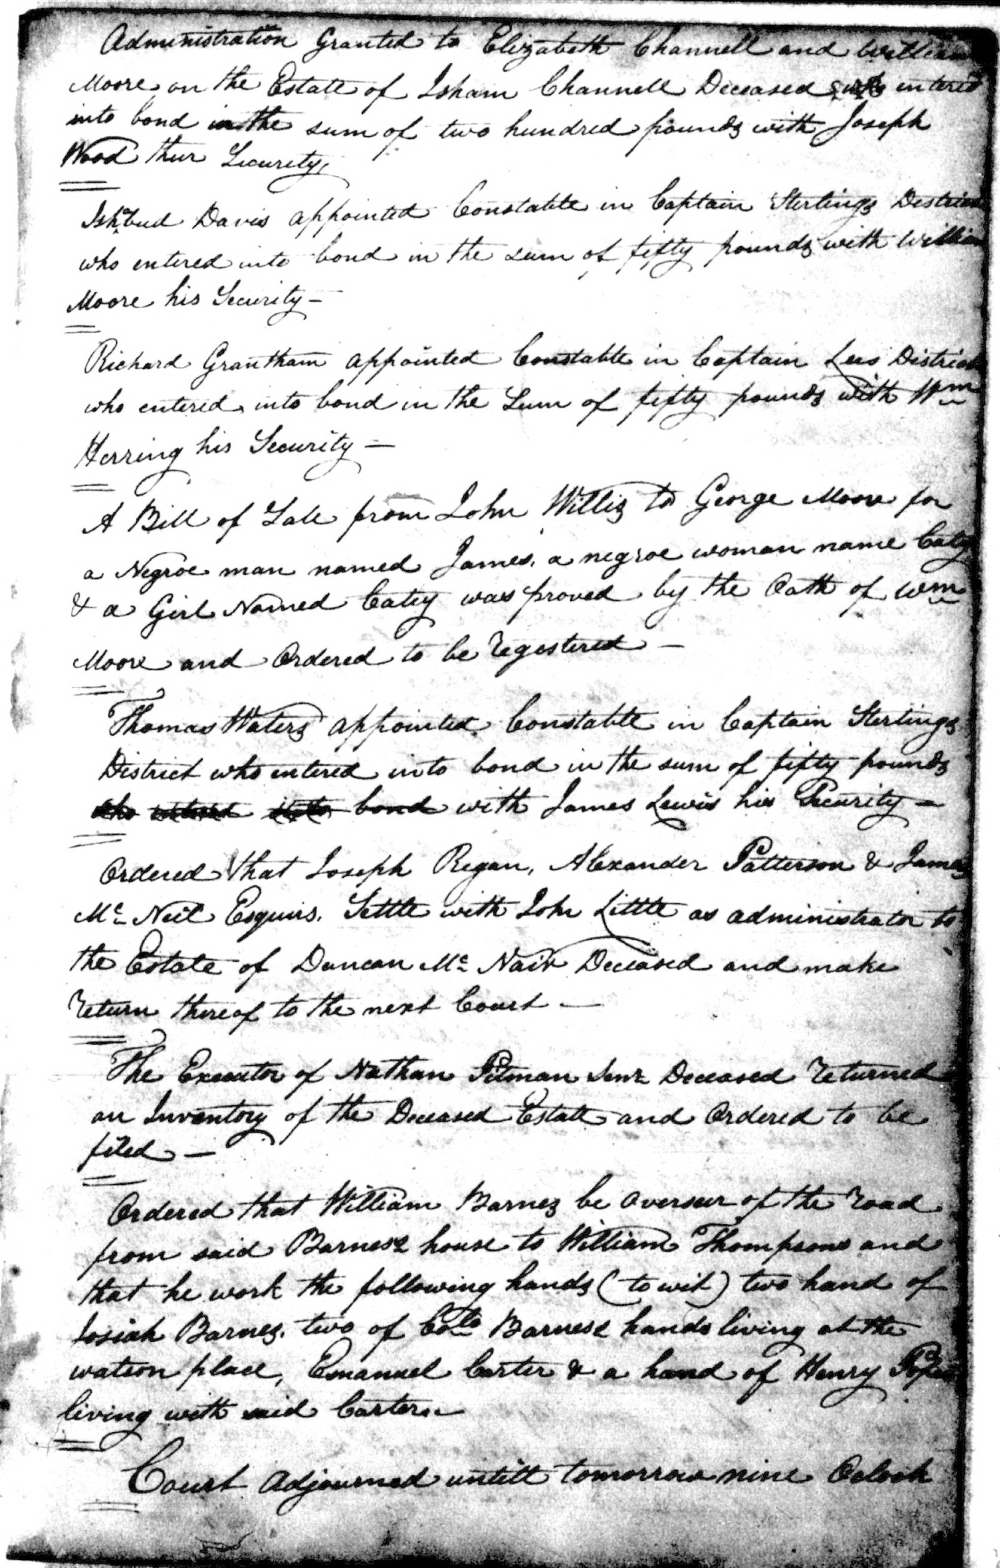 Administration Granted to Elizabeth Channell and William
Moore on the Estate of Isham Channell Deceased who entered
into bond in the sum of two hundred pounds with Joseph
Wood thur Security,
Davis appointed Constable in Captain Sterlings District
who entered into bond in the sum of fifty pounds with William
Moore his Security —
Richard Grantham appointed Constable in Captain Lees District
who entered into bond in the Sum of fifty pounds with Wm
Herring his Security —
A Bill of Sale from John Willis to George Moore for
a Negroe man named James, a negroe woman name Caty
& a Girl Named Catey was proved by the Oath of Wm
Moore and Ordered to be Regestered —
Thomas Waters appointed Constable in Captain Sterlings
District who entered into bond in the sum of fifty pounds
who entered into bond with James Lewis his Security —
Ordered that Joseph Regan, Alexander Patterson & James
Mc Neil Esquirs. Settle with John Little as administrator to
the Estate of Duncan Mc Nair Deceased and make
Return thereof to the next Court —
The Executor of Nathan Pitman Senr Deceased Returned
an Inventory of the Deceased Estate and Ordered to be
filed —
Ordered that William Barnes be Overseer of the Road
from said Barness house to William Thompsons and
that he work the following hands (to wit) two hand of
Josiah Barnes, two of Colo Barness hands living at the
watson place, Emanuel Carter & a hand of Henry Popes
living with said Carter. —
Court adjourned untill tomorrow nine Oclock